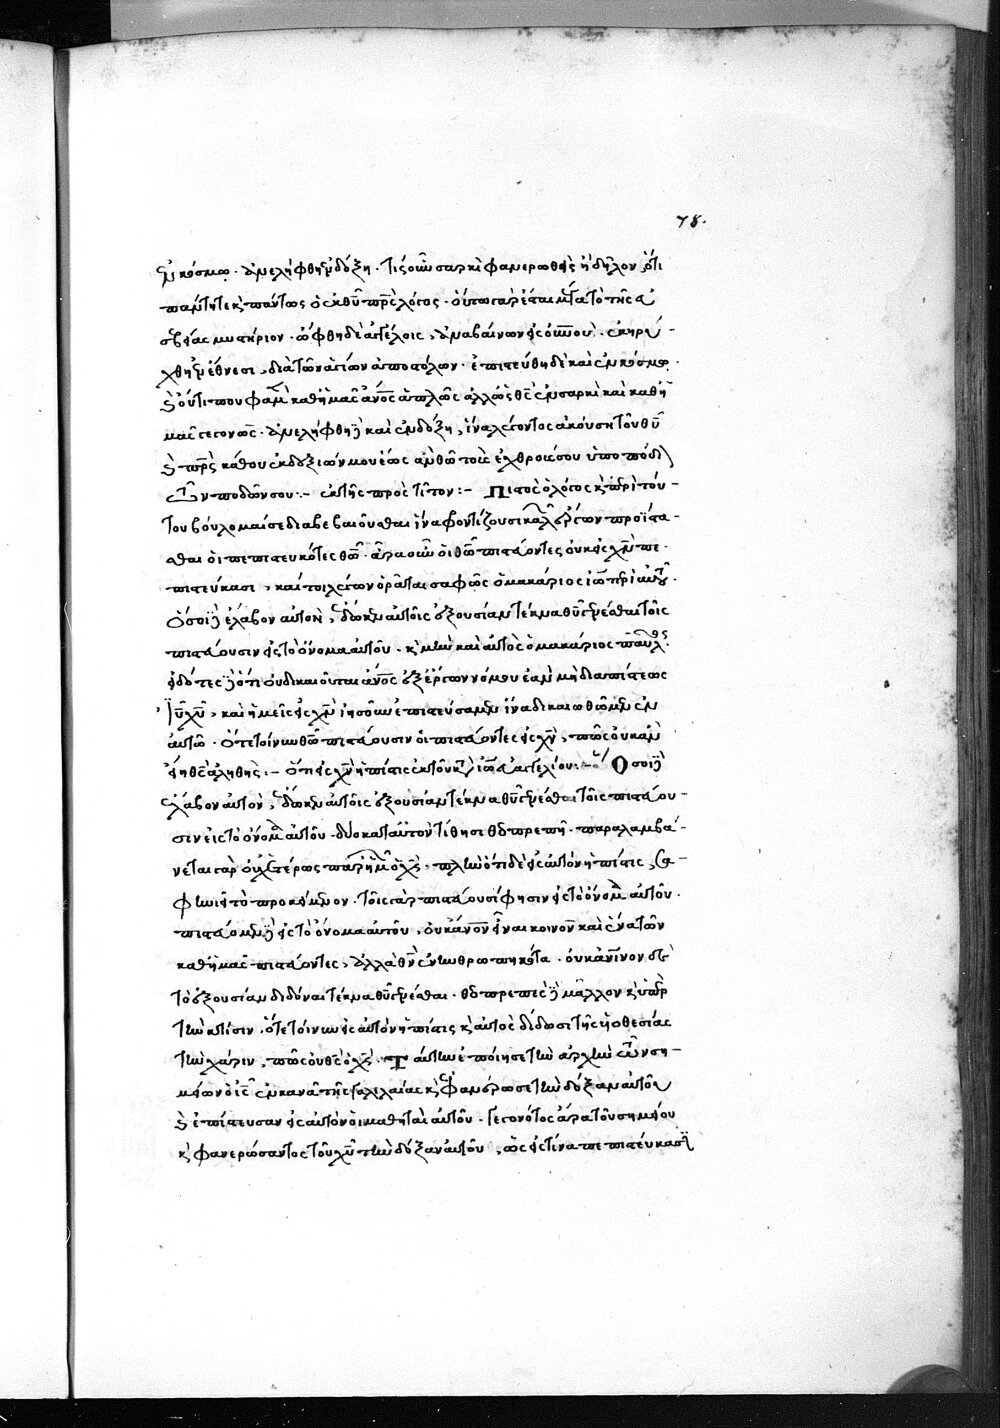 78.
ἐν κόσμῳ · ἀνελήφθη ἐν δόξῃ · τίς οὖν σαρκὶ φανερωθεὶς ἢ δῆλον ὅτι
πάντη τε κ πάντως ὁ ἐκ θυ πρς λόγος · οὕτω γὰρ ἔσται μέγα τὸ τῆς εὐ
σεβείας μυστήριον · ὤφθη δὲ ἀγγέλοις, ἀναβαίνων εἰς οὐνους · ἐκηρύ -
χθη ἐν ἔθνεσι, διὰ τῶν ἁγίων ἀποστόλων · ἐπιστεύθη δὲ καὶ ἐν κόσμῳ ·
οὔτι που φαμὲν καθ ἡμᾶς ανος ἁπλῶς ἀλλ ὡς θς ἐν σαρκὶ καὶ καθ ἡ
μᾶς γεγονώς · ἀνελήφθη καὶ ἐν δόξῃ, ἵνα λέγοντος ἀκούσῃ τοῦ θυ
κ πρς κάθου ἐκ δεξιῶν μου ἕως ἂν θῶ τοὺς ἐχθρούς σου ὑποπόδι
ον τῶν ποδῶν σου :- ἐκ τῆς πρὸς τίτον :- Πιστὸς ὁ λόγος κ περὶ τού -
του βούλομαί σε διαβεβαιοῦσθαι ἵνα φροντίζουσι καλῶν ἔργων προΐστα -
σθαι οἱ πεπιστευκότες θῶ · ἆρα οὖν οἱ θῶ πιστεύοντες οὐκ εἰς χν πε ·
πιστεύκασι, καίτοι λέγων ὁρᾶται σαφῶς ὁ μακάριος ἰω περὶ αὐτοῦ ·
Ὅσοι δὲ ἔλαβον αὐτὸν, ἔδωκεν αὐτοῖς ἐξουσίαν τέκνα θυ γενέσθαι τοῖς
πιστεύουσιν εἰς τὸ ὄνομα αὐτοῦ · κ μὴν καὶ αὐτὸς ὁ μακάριος παῦλος
εἰδότες δὲ ὅτι οὐ δικαιοῦται ανος ἐξ ἔργων νόμου ἐὰν μὴ διὰ πίστεως
ιυ χυ, καὶ ἡμεῖς εἰς χν ἰησοῦν ἐπιστεύσαμεν ἵνα δικαιωθῶμεν ἐν
αὐτῶ · ὅτε τοίνυν θῶ πιστεύουσιν οἱ πιστεύοντες εἰς χν, πῶς οὐκ ἂν
εἴη θς ἀληθής :- Ὅτι εἰς χν ἡ πίστις ἐκ τοῦ κατὰ ἰω εὐαγγελίου :- Ὅσοι δὲ
ἔλαβον αὐτὸν, ἔδωκεν αὐτοῖς ἐξουσίαν τέκνα θυ γενέσθαι τοῖς πιστεύου -
σιν εἰς τὸ ὄνομα αὐτοῦ · δύο κατ αὐτὸν τίθησι θεοπρεπῆ · παραλαμβά -
νεται γὰρ οὐχ ἑτέρως παρ ἡμῶν · πλὴν ὅτι δὲ εἰς αὐτὸν ἡ πίστις,
φωνεῖ τὸ προκείμενον · τοῖς γὰρ πιστεύουσί φησιν εἰς τὸ ὄνομα αὐτοῦ ·
πιστεύομεν δὲ εἰς τὸ ὄνομα αὐτοῦ, οὐκ ανον εἶναι κοινὸν καὶ ἕνα τῶν
καθ ἡμᾶς πιστεύοντες, ἀλλὰ θν ἐνανθρωπηκότα · οὐκ ἀνινον δὲ
τὸ ἐξουσίαν διδόναι τέκνα θυ γενέσθαι · θεοπρεπὲς δὲ μᾶλλον κ ὑπὲρ
τὴν κτίσιν · ὅτε τοίνυν εἰς αὐτὸν ἡ πίστις κ αὐτὸς δίδωσι τῆς υἱοθεσίας
τὴν χάριν, πῶς οὐ θς · Ταύτην ἐποίησε τὴν ἀρχὴν τῶν ση -
μείων ὁ ις ἐν κανᾶ τῆς γαλιλαίας κ ἐφανέρωσε τὴν δόξαν αὐτοῦ
κ ἐπίστευσαν εἰς αὐτὸν οἱ μαθηταὶ αὐτοῦ · γεγονότος ἄρα τοῦ σημείου
κ φανερώσαντος τοῦ χυ τὴν δόξαν αὐτοῦ, ὡς εἰς τίνα πεπιστεύκασι